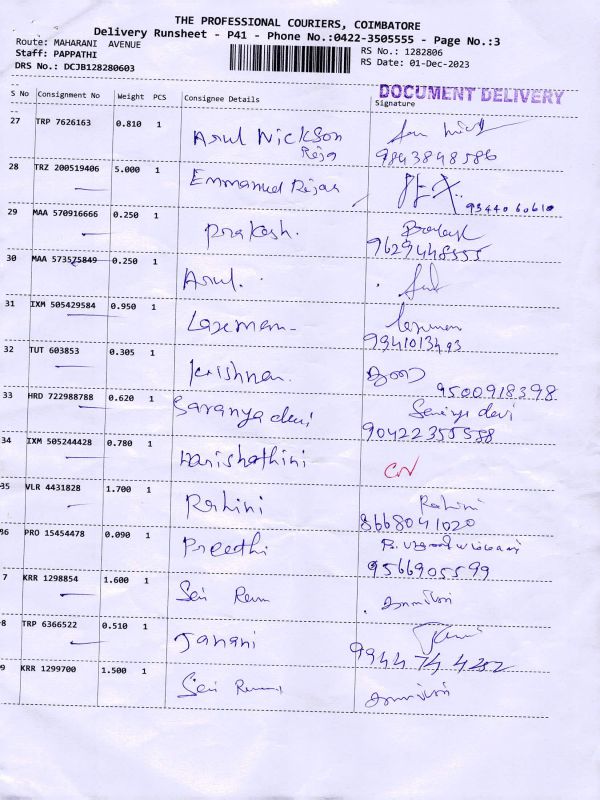 THE PROFESSIONAL COURIERS, COIMBATORE
Delivery Runsheet - P41 - Phone No.:0422-3505555 - Page No.:3
Route: MAHARANI AVENUE
RS No.: 1282806
Staff: PAPPATHI
RS Date: 01-Dec-2023
DRS No.: DCJB128280603
DOCUMENT DELIVERY
S No Consignment No Weight PCS Consignee Details Signature
27 TRP 7626163 0.810 1 Arul Nickson
Reja 9843848586
28 TRZ 200519406 5.000 1 Emmanuel
9344060610
29 MAA 570916666 0.250 1 Prakash.
9629448555
30 MAA 573575849 0.250 1 Arul.
31 IXM 505429584 0.950 1 Laxeman-
9941013493
32 TUT 603853 0.305 1 Krishnan.
9500918398
33 HRD 722988788 0.620 1 Saranya devi
9042235558
34 IXM 505244428 0.780 1 Harishathini
35 VLR 4431828 1.700 1 Rohini Rohini
8668041020
36 PRO 15454478 0.090 1 Preethi
9566905599
7 KRR 1298854 1.600 1 Sai Ram
8 TRP 6366522 0.510 1 Janani
9944 74 4252
9 KRR 1299700 1.500 1 Sai